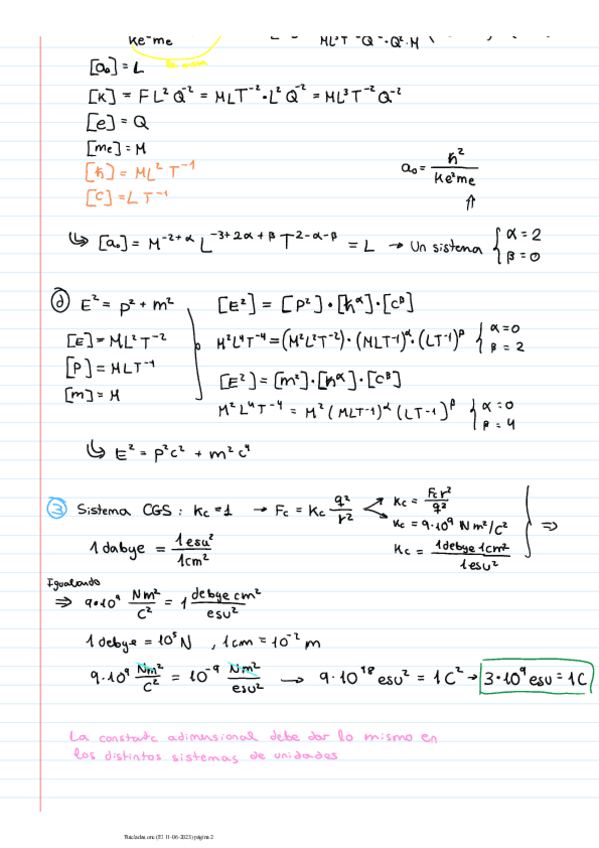 Ke²me
[a₀] = L
[K] = F L² Q⁻² = MLT⁻² · L² Q⁻² = ML³ T⁻² Q⁻²
[e] = Q
[me] = M
[ħ] = ML² T⁻¹
[C] = L T⁻¹
a₀ = ħ² / Ke²me
↳ [a₀] = M^(-2+α) L^(-3+2α+β) T^(2-α-β) = L → Un sistema { α = 2 β = 0
d) E² = p² + m²
[E] = ML² T⁻²
[P] = MLT⁻¹
[m] = M
[E²] = [P²] · [ħ^α] · [C^β]
M²L⁴T⁻⁴ = (M²L²T⁻²) · (MLT⁻¹)^α · (LT⁻¹)^β { α = 0 β = 2
[E²] = [m²] · [ħ^α] · [C^β]
M² L⁴ T⁻⁴ = M² (MLT⁻¹)^α (LT⁻¹)^β { α = 0 β = 4
↳ E² = P²c² + m²c⁴
3 Sistema CGS: Kc = 1 → Fc = Kc q²/r²
Kc = Fc r²/q²
Kc = 9·10⁹ N m²/C²
Kc = 1debye 1cm² / 1esu²
⇒
1 dabye = 1esu² / 1cm²
Igualando
⇒ 9·10⁹ Nm²/C² = 1 debye cm²/esu²
1 debye = 10⁵ N , 1cm = 10⁻² m
9·10⁹ Nm²/C² = 10⁻⁹ Nm²/esu² → 9·10¹⁸ esu² = 1C² → 3·10⁹ esu = 1C
La constate adimensional debe dar lo mismo en
los distintos sistemas de unidades